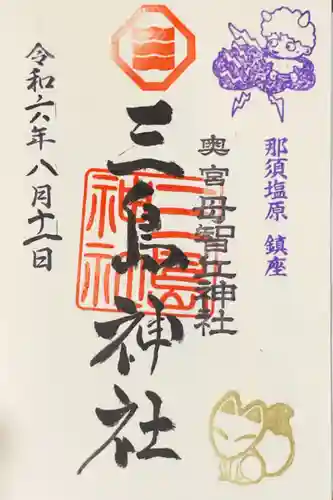 那須塩原 鎮座
奥宮 母智丘神社
三島神社
三島神社
令和六年八月十一日